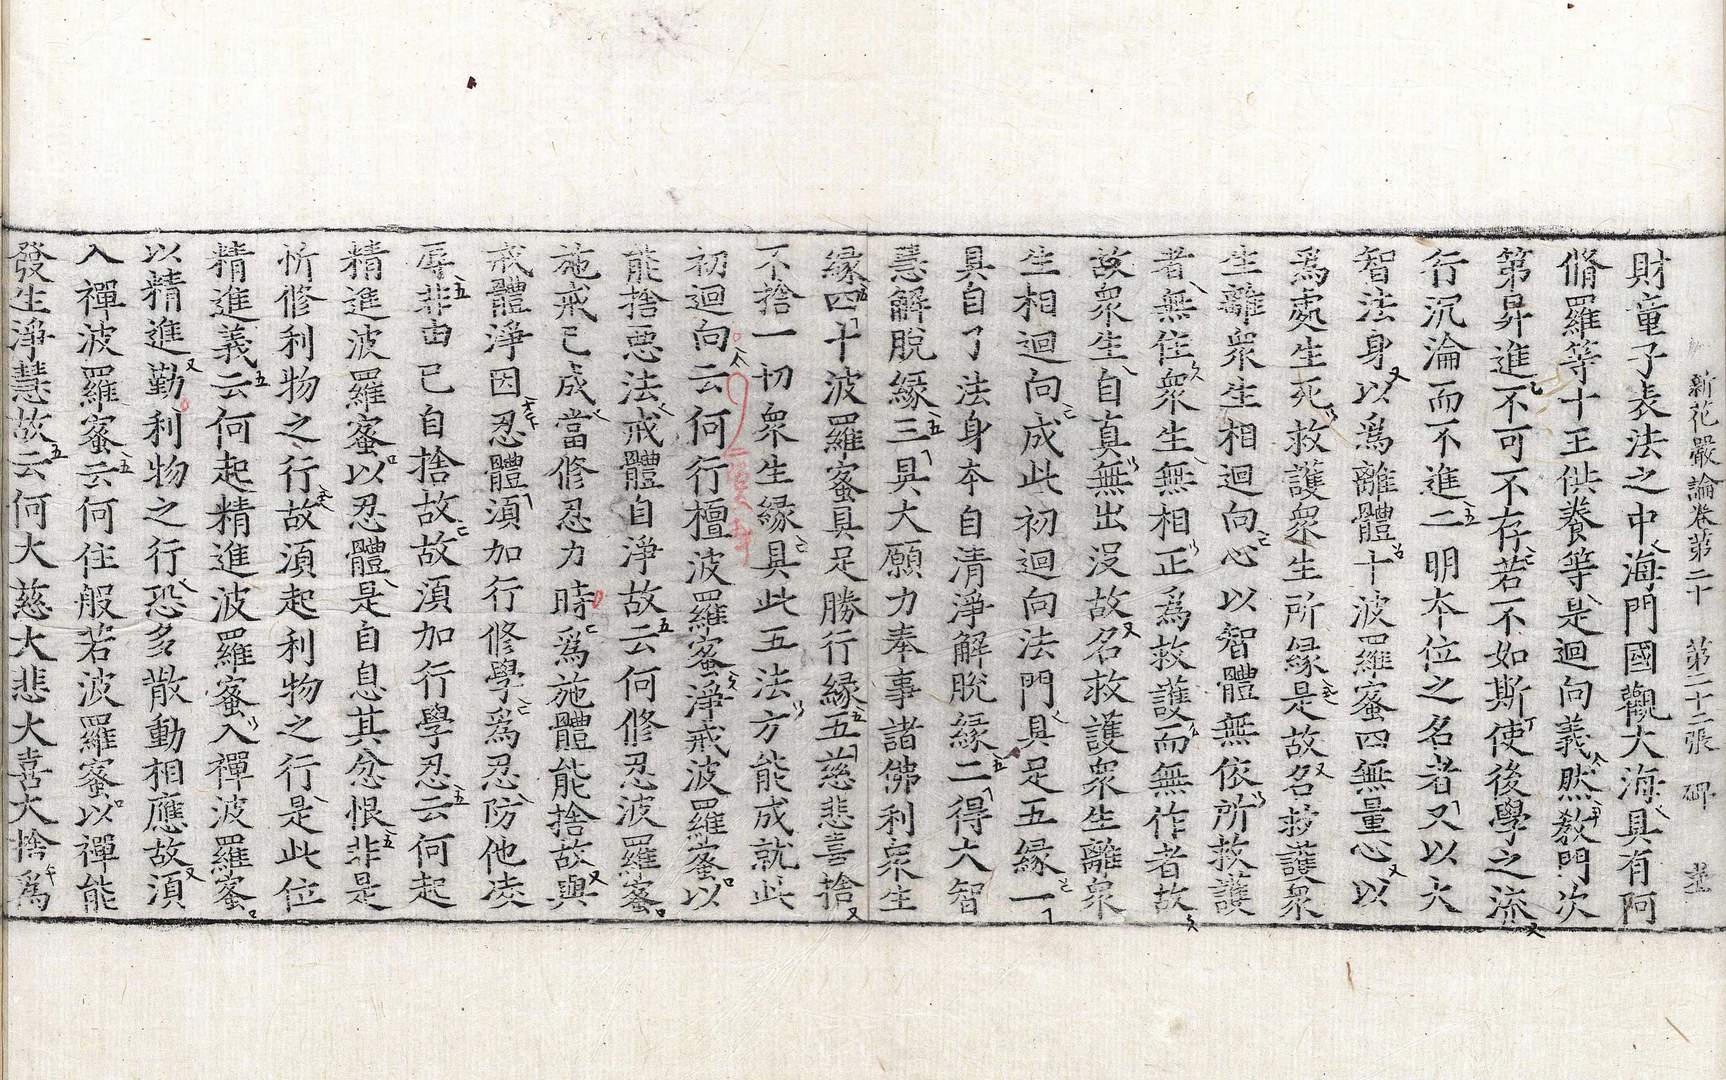 新花嚴論卷第二十　第二十二張　碑
財童子表法之中海門國觀大海具有阿
脩羅等十王供養等是迴向義然教門次
第昇進不可不存若不如斯使後學之流
行沉淪而不進二明本位之名者又以大
智法身以爲離體十波羅蜜四無量心以
爲處生死救護衆生所縁是故名救護衆
生離衆生相迴向心以智體無依所救護
者無住衆生無相正爲救護而無作者故
故衆生自真無出沒故名救護衆生離衆
生相迴向成此初迴向法門具足五縁一
具自了法身本自清淨解脫縁二得大智
慧解脫縁三具大願力奉事諸佛利衆生
縁四十波羅蜜具足勝行縁五慈悲喜捨
不捨一切衆生縁具此五法方能成就此
初迴向云何行檀波羅蜜淨戒波羅蜜以
能捨惡法戒體自淨故云何修忍波羅蜜
施戒已成當修忍力時爲施體能捨故與
戒體淨因忍體湏加行修學爲忍防他凌
辱非由已自捨故故湏加行學忍云何起
精進波羅蜜以忍體是自息其忿恨非是
忻修利物之行故湏起利物之行是此位
精進義云何起精進波羅蜜入禪波羅蜜
以精進勤利物之行恐多散動相應故湏
入禪波羅蜜云何住般若波羅蜜以禪能
發生淨慧故云何大慈大悲大喜大捨爲